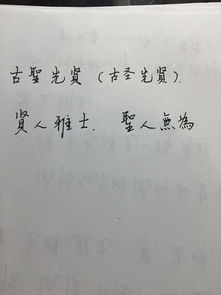 古聖先贤（古圣先贤）.
贤人雅士. 聖人無為